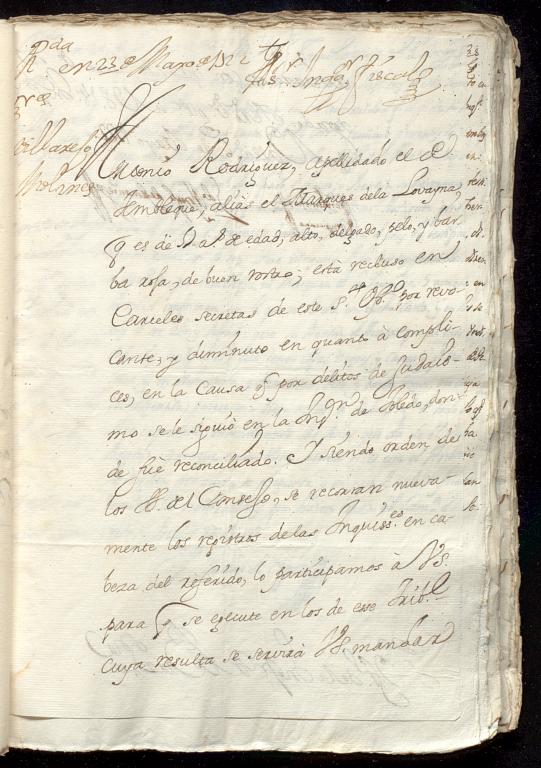 en 23 de Mayo de 1722
Fiscal
Villarejo
Molines
Antonio Rodriguez, apellidado el de
Tembleque, alias el Marques de la Lovayna,
q es de de edad, alto, delgado, pelo, y bar
ba roja, de buen rostro; està recluso en
Carceles secretas de este S.to Off.o por revo-
cante, y diminuto en quanto à compli-
ces, en la Causa q por delitos de Judais-
mo se le siguiò en la Inq.on de Toledo, don-
de fuè reconciliado. Y siendo orden de
los SS. del Consejo, se recorran nueva-
mente los registros de las Inquiss.es en ca-
beza del referido, lo participamos à VS.
para q se egecute en los de esse Trib.l
cuya resulta se servirà VS. mandar